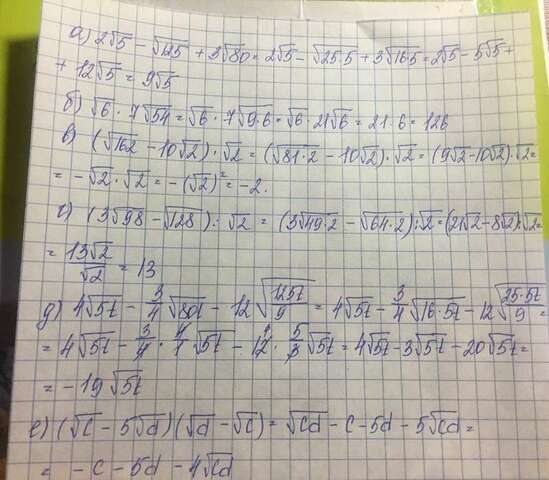 а) 2√5 - √125 + 3√80 = 2√5 - √25·5 + 3√16·5 = 2√5 - 5√5 +
+ 12√5 = 9√5
б) √6 · 7√54 = √6 · 7√9·6 = √6 · 21√6 = 21·6 = 126
в) (√162 - 10√2)·√2 = (√81·2 - 10√2)·√2 = (9√2 - 10√2)·√2 =
= -√2·√2 = -(√2)² = -2.
г) (3√98 - √128):√2 = (3√49·2 - √64·2):√2 = (21√2 - 8√2):√2 =
= 13√2/√2 = 13
д) 4√5t - 3/4 √80t - 12√125t/9 = 4√5t - 3/4 √16·5t - 12√25·5t/9 =
= 4√5t - 3/4 · 4/1 √5t - 12 · 5/3 √5t = 4√5t - 3√5t - 20√5t =
= -19√5t
е) (√c - 5√d)(√d - √c) = √cd - c - 5d - 5√cd =
= -c - 5d - 4√cd